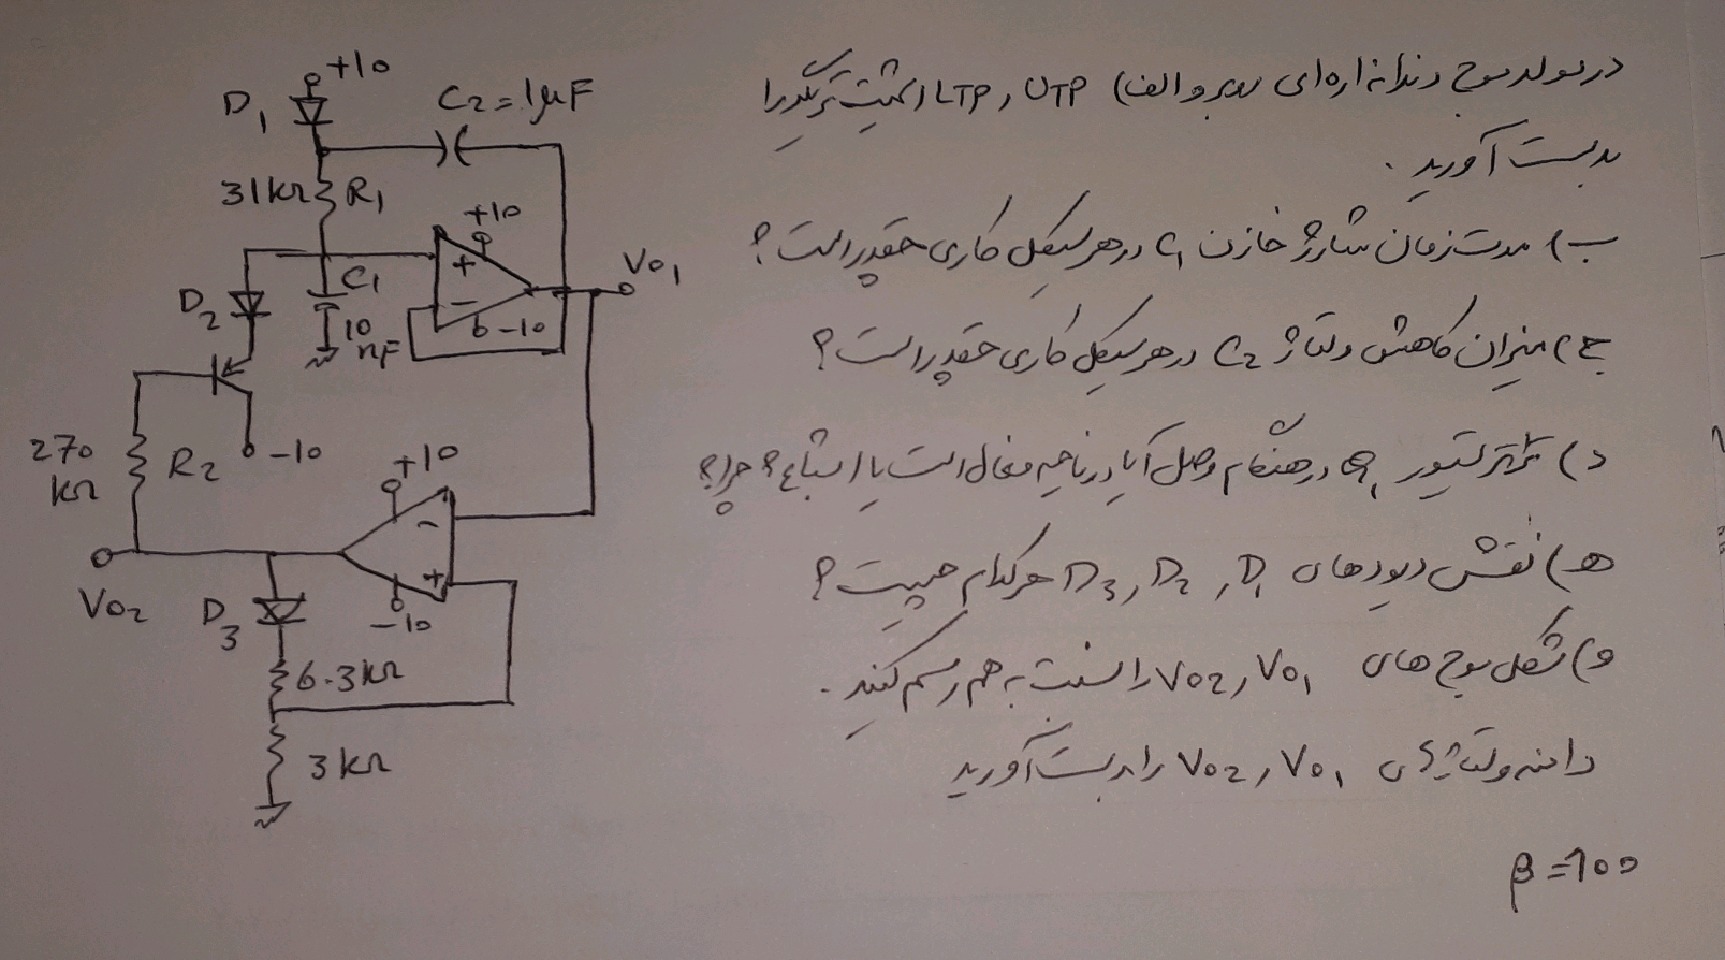 در مولد موج دندانه اره ای روبرو الف) UTP و LTP اشمیت تریگر را
بدست آورید .
ب) مدت زمان شارژ خازن C1 در هر سیکل کاری چقدر است ؟
ج) میزان کاهش ولتاژ C2 در هر سیکل کاری چقدر است ؟
د) ترانزیستور Q1 در هنگام وصل آیا در ناحیه فعال است یا اشباع ؟ چرا ؟
ه) نقش دیودهای D1 , D2 , D3 هرکدام چیست ؟
و) شکل موج های Vo1 , Vo2 را نسبت به هم رسم کنید .
دامنه ولتاژهای Vo1 , Vo2 را بدست آورید
β = 100
+10
D1
C2 = 1μF
31kΩ R1
+10
+
C1
Vo1
D2
-
-10
10 nF
270 kΩ
R2
-10
+10
-
+
Vo2
D3
-10
6.3kΩ
3kΩ